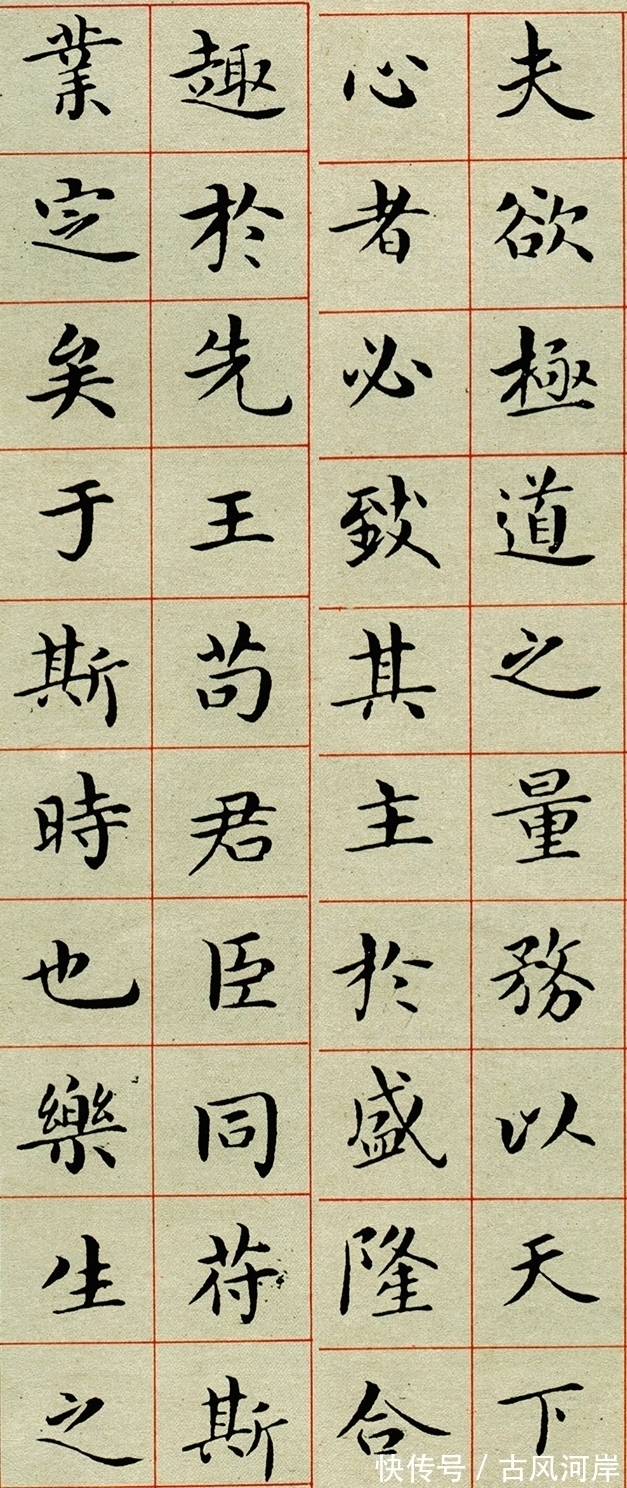 夫欲極道之量務以天下
心者必致其主於盛隆合
趣於先王苟君臣同苻斯
業定矣于斯時也樂生之
快传号/古风河岸